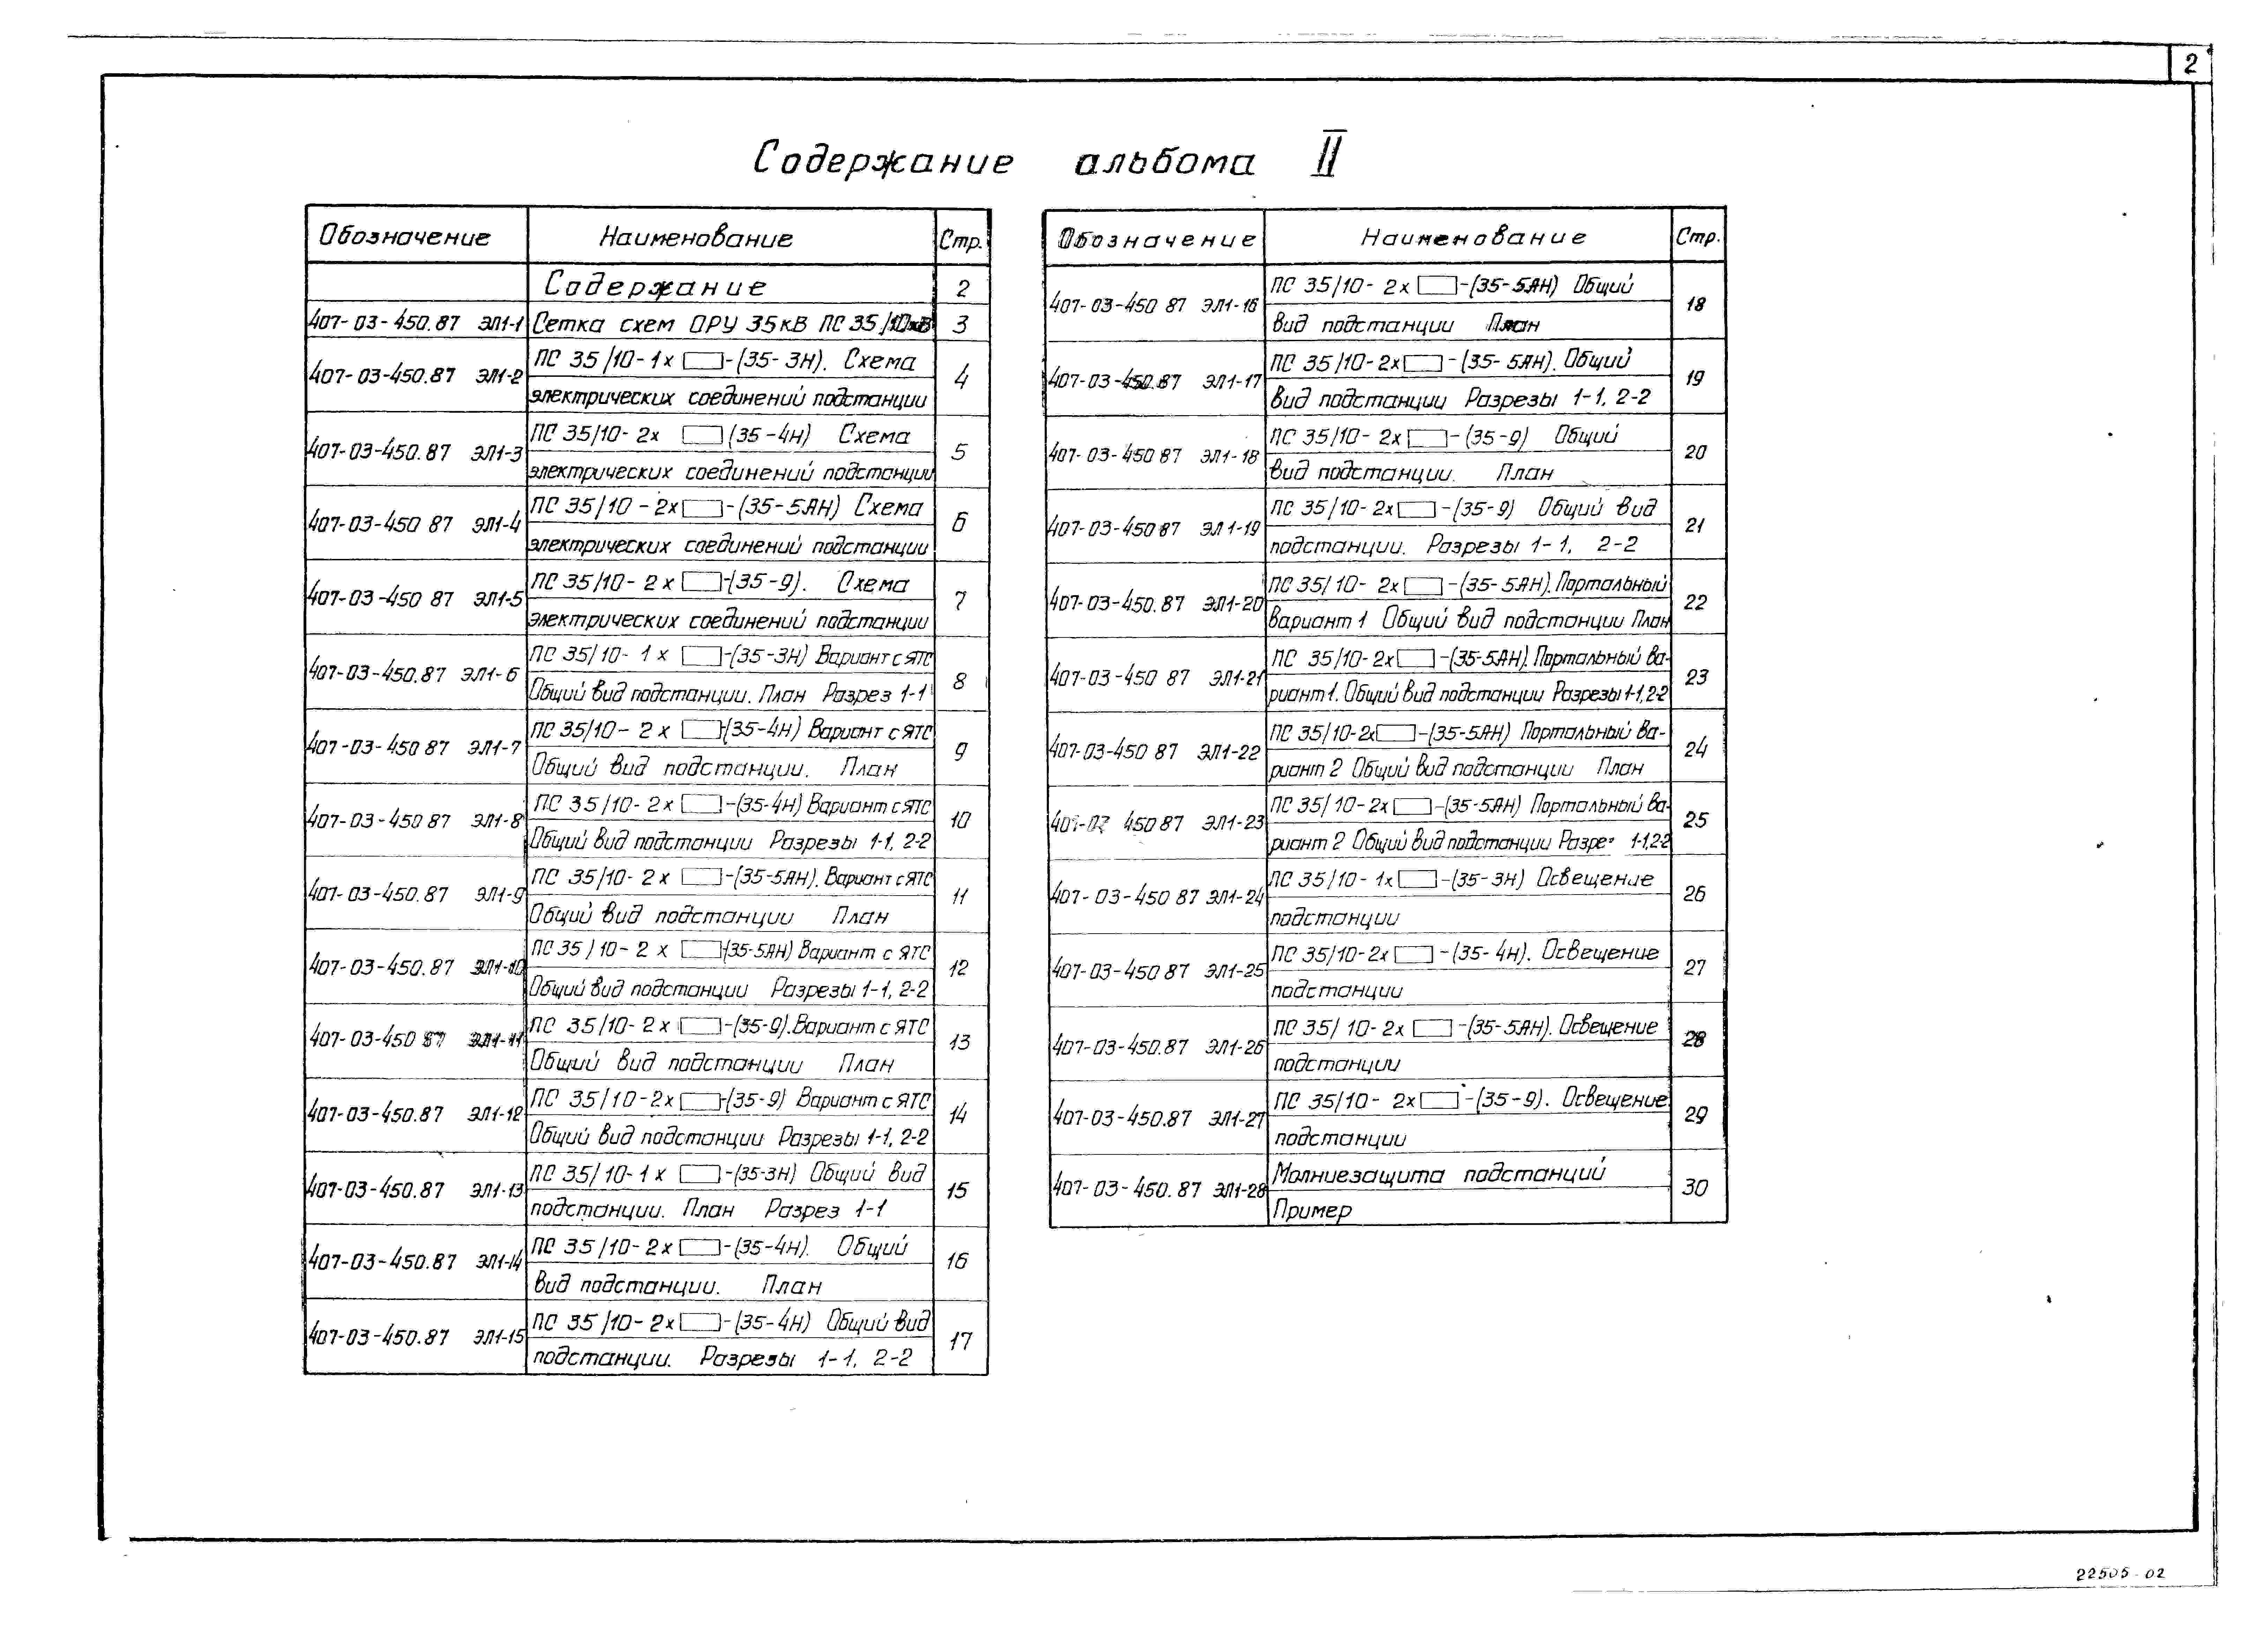 2
Содержание альбома II
Обозначение Наименование Стр.
Содержание 2
407-03-450.87 ЭЛ1-1 Сетка схем ОРУ 35кВ ПС 35/10кВ 3
407-03-450.87 ЭЛ1-2 ПС 35/10-1х □-(35-3Н). Схема 4
электрических соединений подстанции
407-03-450.87 ЭЛ1-3 ПС 35/10-2х □ (35-4Н) Схема 5
электрических соединений подстанции
407-03-450 87 ЭЛ1-4 ПС 35/10-2х□-(35-5АН) Схема 6
электрических соединений подстанции
407-03-450 87 ЭЛ1-5 ПС 35/10-2х□-(35-9). Схема 7
электрических соединений подстанции
407-03-450.87 ЭЛ1-6 ПС 35/10-1х □-(35-3Н) Вариант с ЯТС 8
Общий вид подстанции. План Разрез 1-1
407-03-450 87 ЭЛ1-7 ПС 35/10-2х □-(35-4Н) Вариант с ЯТС 9
Общий вид подстанции. План
407-03-450 87 ЭЛ1-8 ПС 35/10-2х□-(35-4Н) Вариант с ЯТС 10
Общий вид подстанции Разрезы 1-1, 2-2
407-03-450.87 ЭЛ1-9 ПС 35/10-2х □-(35-5АН). Вариант с ЯТС 11
Общий вид подстанции План
407-03-450.87 ЭЛ1-10 ПС 35/10-2х □-(35-5АН) Вариант с ЯТС 12
Общий вид подстанции Разрезы 1-1, 2-2
407-03-450 87 ЭЛ1-11 ПС 35/10-2х□-(35-9). Вариант с ЯТС 13
Общий вид подстанции План
407-03-450.87 ЭЛ1-12 ПС 35/10-2х□-(35-9) Вариант с ЯТС 14
Общий вид подстанции Разрезы 1-1, 2-2
407-03-450.87 ЭЛ1-13 ПС 35/10-1х □-(35-3Н) Общий вид 15
подстанции. План Разрез 1-1
407-03-450.87 ЭЛ1-14 ПС 35/10-2х□-(35-4Н). Общий 16
вид подстанции. План
407-03-450.87 ЭЛ1-15 ПС 35/10-2х□-(35-4Н) Общий вид 17
подстанции. Разрезы 1-1, 2-2
Обозначение Наименование Стр.
407-03-450 87 ЭЛ1-16 ПС 35/10-2х□-(35-5АН) Общий 18
вид подстанции План
407-03-450.87 ЭЛ1-17 ПС 35/10-2х□-(35-5АН). Общий 19
вид подстанции Разрезы 1-1, 2-2
407-03-450 87 ЭЛ1-18 ПС 35/10-2х□-(35-9) Общий 20
вид подстанции. План
407-03-450 87 ЭЛ1-19 ПС 35/10-2х□-(35-9) Общий вид 21
подстанции. Разрезы 1-1, 2-2
407-03-450.87 ЭЛ1-20 ПС 35/10-2х□-(35-5АН). Портальный 22
вариант 1 Общий вид подстанции План
407-03-450 87 ЭЛ1-21 ПС 35/10-2х□-(35-5АН). Портальный ва- 23
риант 1. Общий вид подстанции Разрезы 1-1, 2-2
407-03-450 87 ЭЛ1-22 ПС 35/10-2х□-(35-5АН) Портальный ва- 24
риант 2 Общий вид подстанции План
450 87 ЭЛ1-23 ПС 35/10-2х□-(35-5АН) Портальный ва- 25
риант 2 Общий вид подстанции 1-1, 2-2
407-03-450 87 ЭЛ1-24 ПС 35/10-1х□-(35-3Н) Освещение 26
подстанции
407-03-450 87 ЭЛ1-25 ПС 35/10-2х□-(35-4Н). Освещение 27
подстанции
407-03-450.87 ЭЛ1-26 ПС 35/10-2х□-(35-5АН). Освещение 28
подстанции
407-03-450.87 ЭЛ1-27 ПС 35/10-2х□-(35-9). Освещение 29
подстанции
407-03-450.87 ЭЛ1-28 Молниезащита подстанций 30
Пример
22505-02